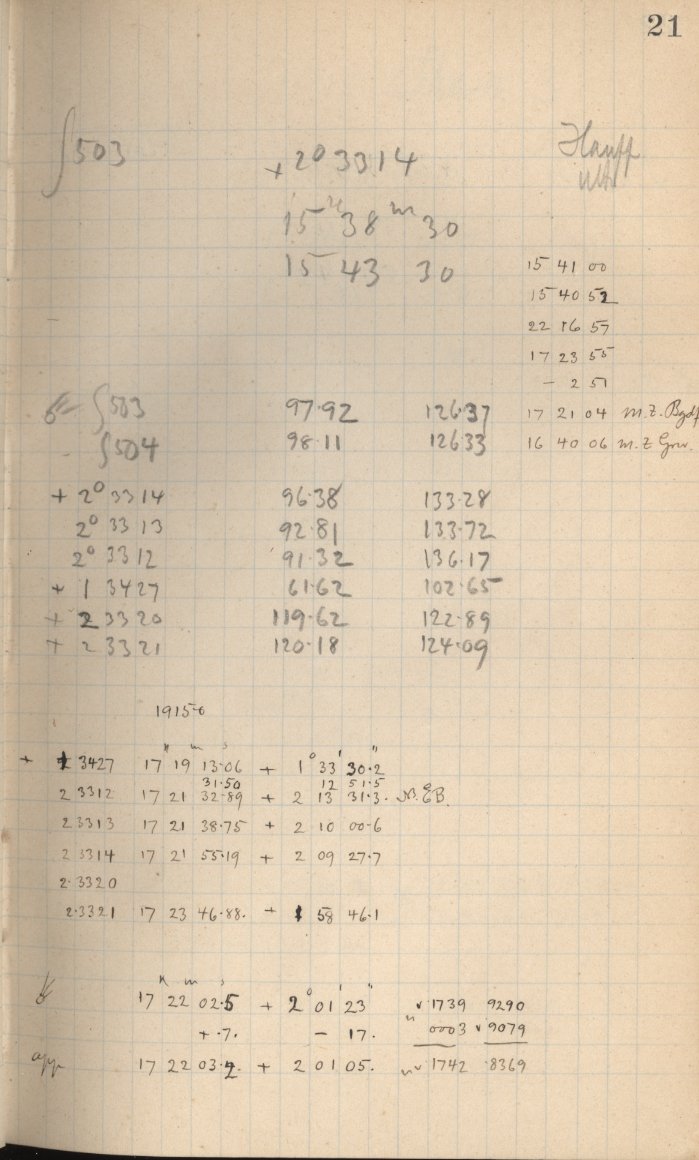 21
∫503 +2° 33 14
15ʰ 38ᵐ 30
15 43 30 15 41 00
15 40 52
22 16 57
17 23 55
- 2 51
∫503 97.92 126.37 17 21 04 m.Z. Bgdf
∫504 98.11 126.33 16 40 06 m.Z Grw.
+ 2° 33 14 96.38 133.28
2° 33 13 92.81 133.72
2° 33 12 91.32 136.17
+ 1 3427 61.62 102.65
+ 2 3320 119.62 122.89
+ 2 3321 120.18 124.09
1915.0
h m s ° ' "
+ 1 3427 17 19 13.06 + 1 33 30.2
31.50 12 51.5
2 3312 17 21 32.89 + 2 13 31.3. N.EB.
2 3313 17 21 38.75 + 2 10 00.6
2 3314 17 21 55.19 + 2 09 27.7
2.3320
2.3321 17 23 46.88. + 1 58 46.1
h m s ° ' "
17 22 02.5 + 2 01 23 1739 9290
+ .7. - 17. 0003 9079
app 17 22 03.2. + 2 01 05. 1742 8369